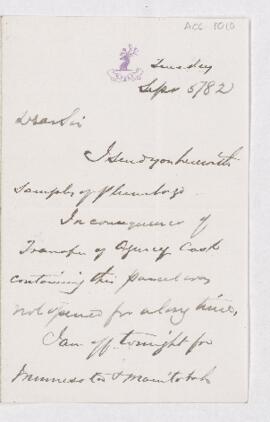 ACC 1010
Tuesday
Sept 5/82
Dear Sir
I send you herewith
Sample of Plumbago
In consequence of
Transfer of Agency Cask
containing this parcel was
not opened for a long time.
I am off tonight for
Minnesota & Manitobah